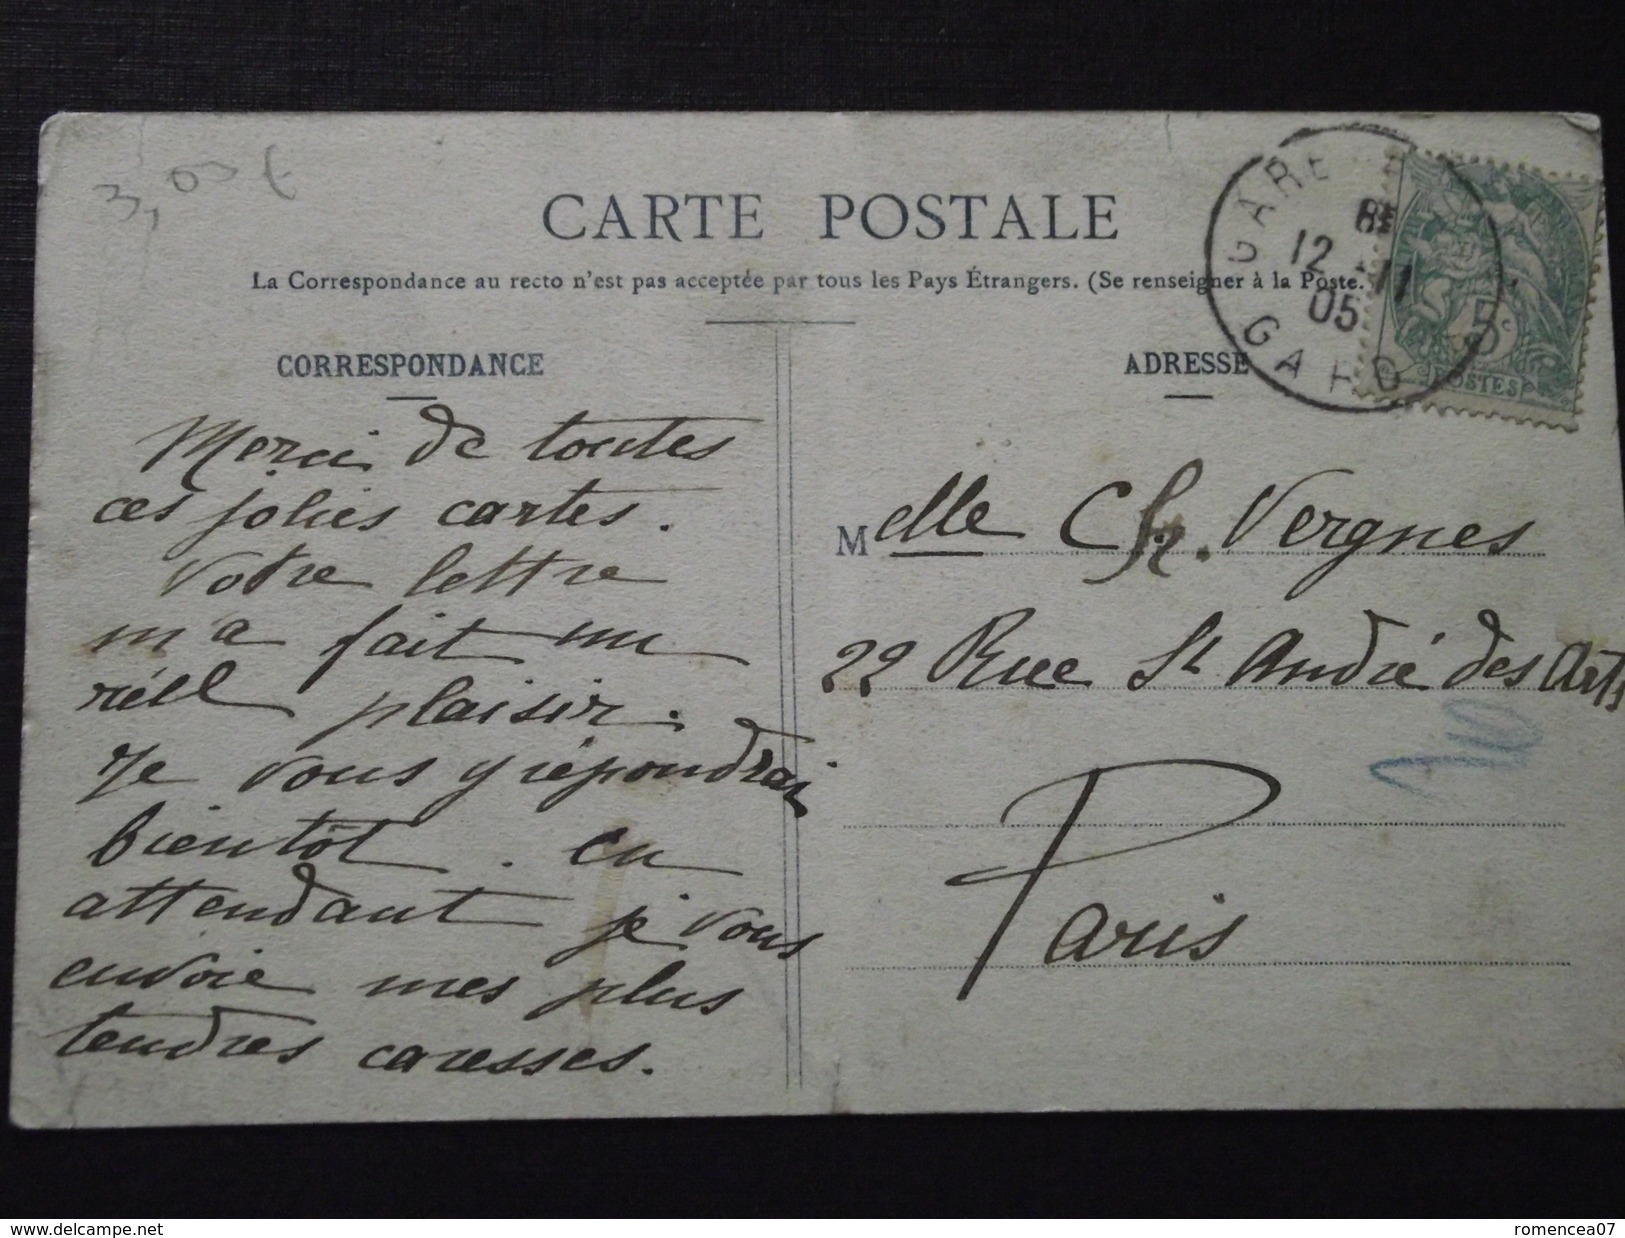 3,05 €
CARTE POSTALE
La Correspondance au recto n'est pas acceptée par tous les Pays Étrangers. (Se renseigner à la Poste.
CORRESPONDANCE
Merci de toutes
ces jolies cartes.
Votre lettre
m'a fait un
réel plaisir.
Je vous y répondrai
bientôt. en
attendant je vous
envoie mes plus
tendres caresses.
ADRESSE
Melle Ch. Vergnes
22 Rue St André des Arts
Paris
GARE
12 11
05
GARD
5c
POSTES
www.delcampe.net
romencea07